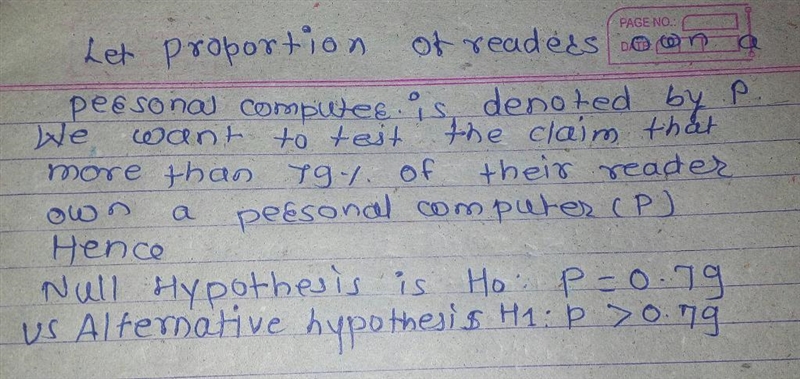 PAGE NO.:
DATE:
Let proportion of readers own a
personal computer is denoted by P.
We want to test the claim that
more than 79%. of their reader
own a personal computer (P)
Hence
Null Hypothesis is H0: P = 0.79
vs Alternative hypothesis H1: P > 0.79